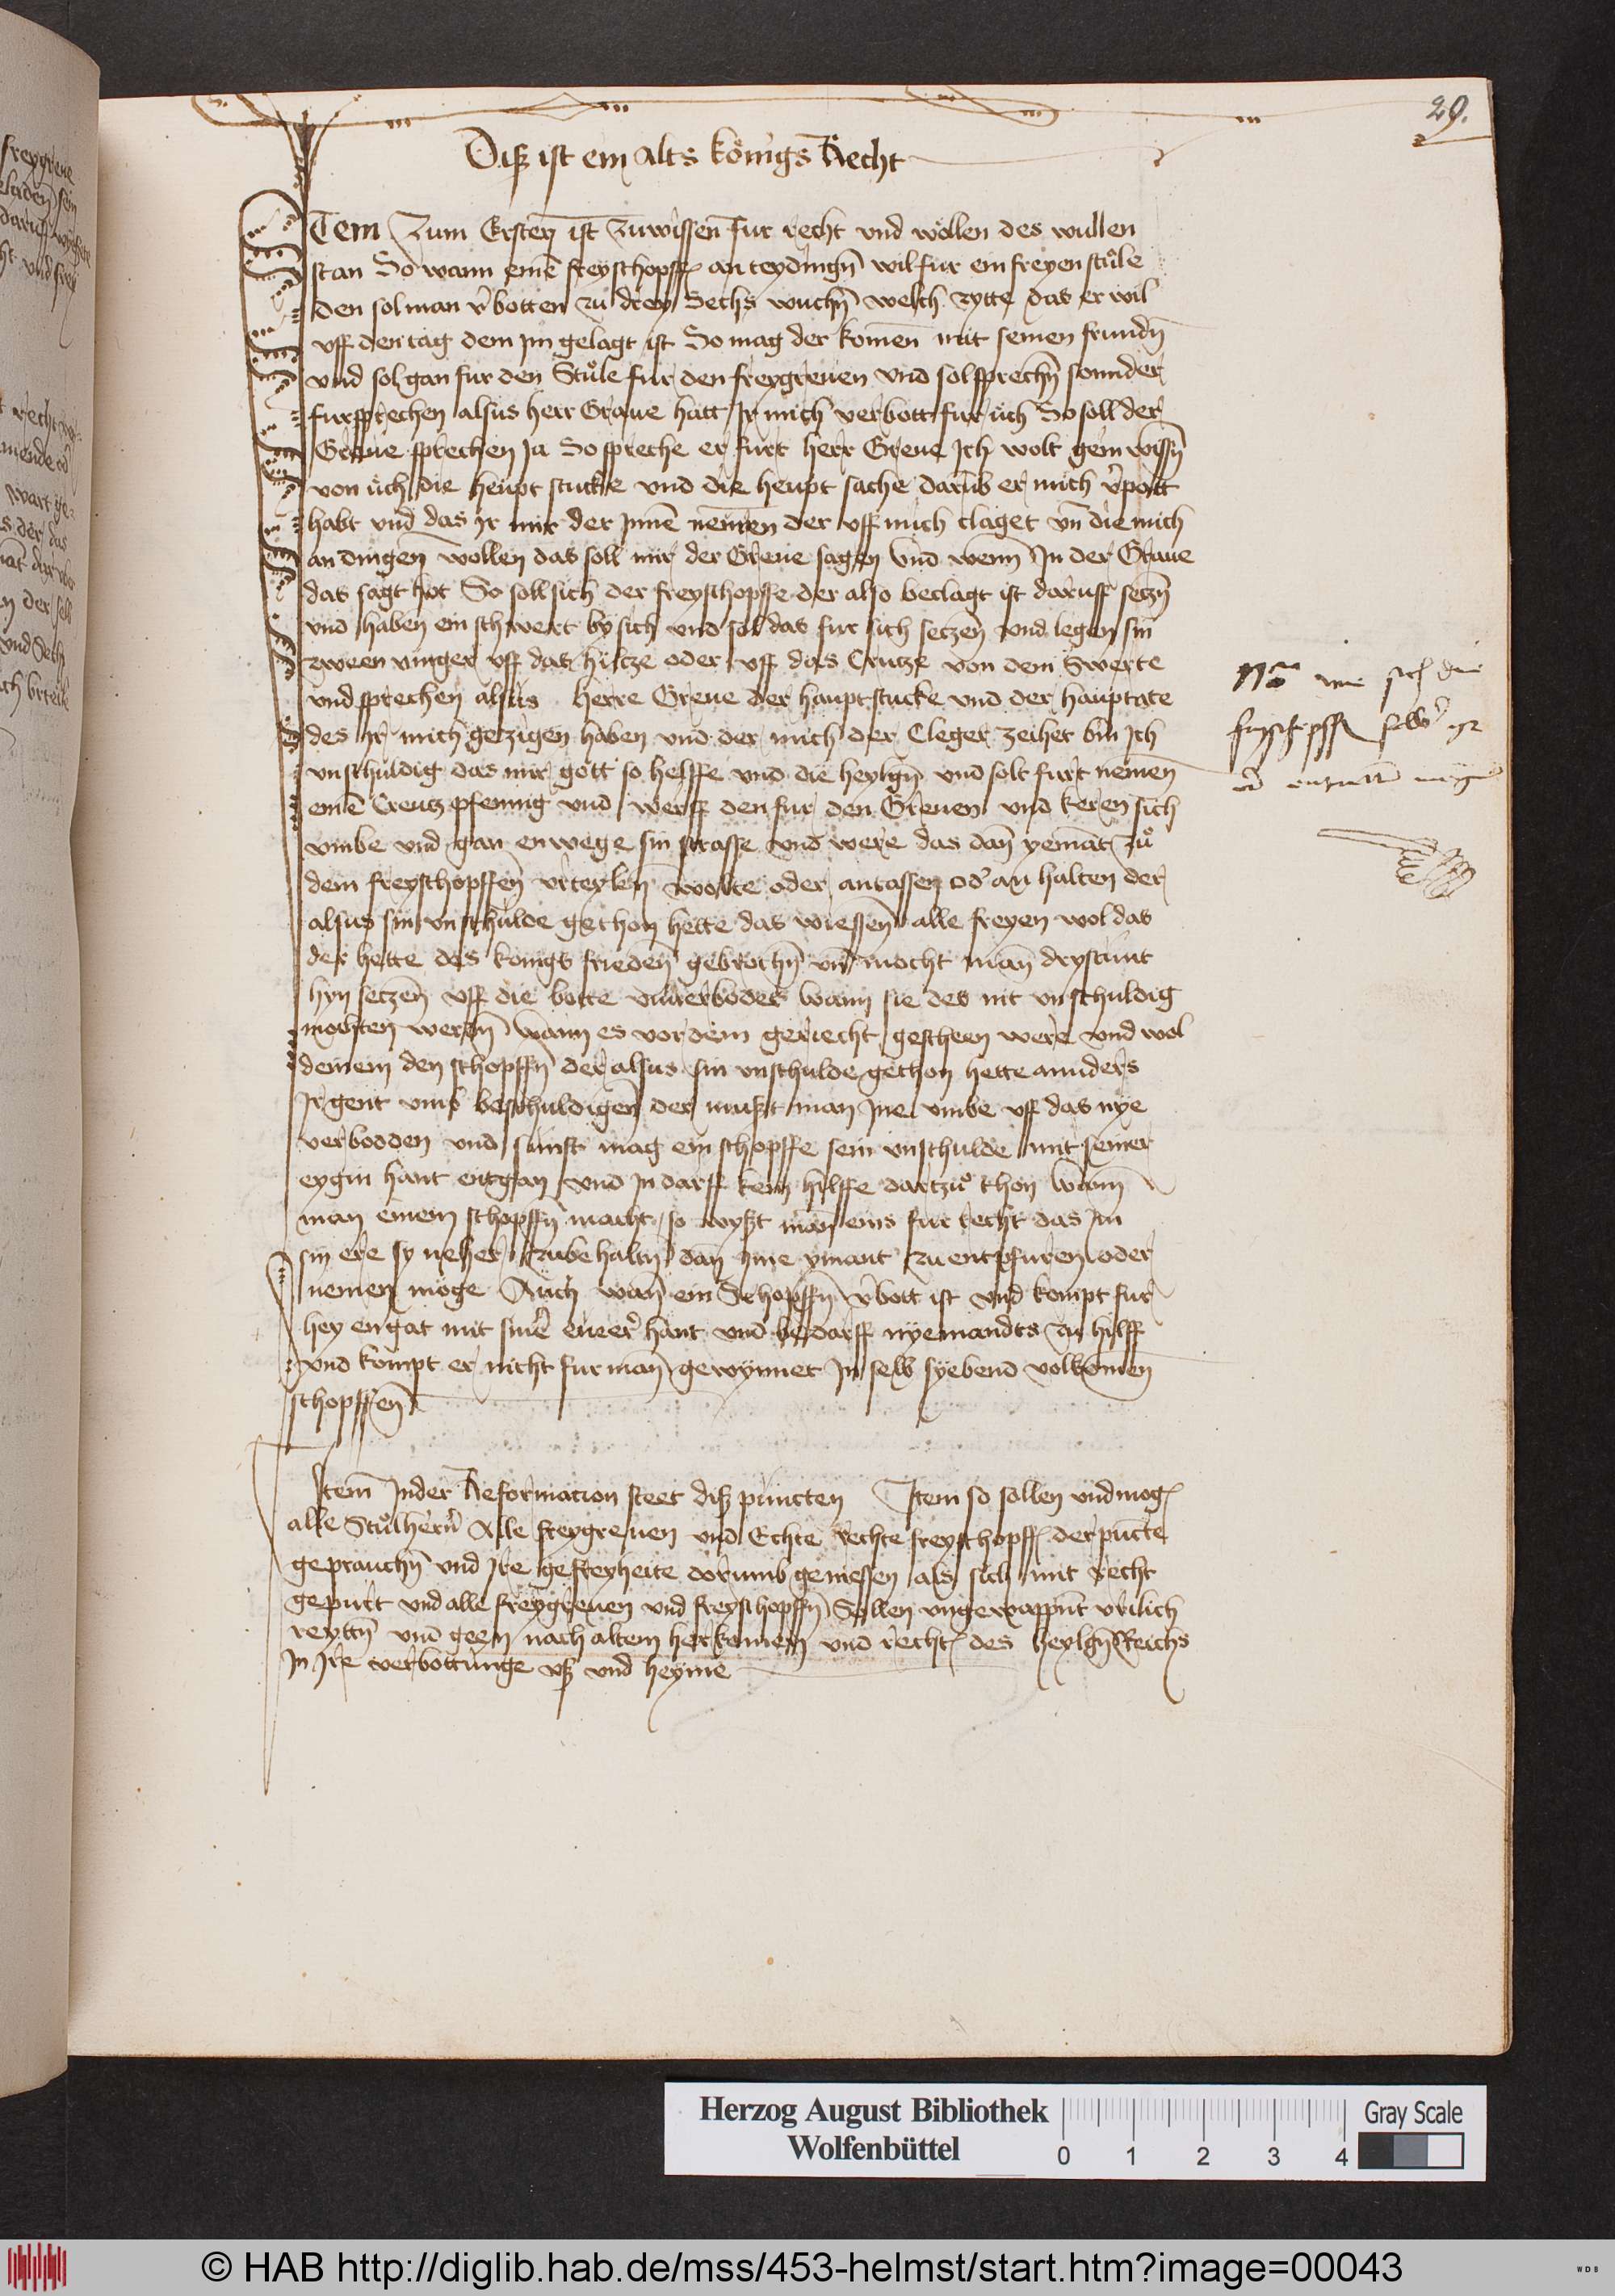 29.
Diß ist ein alts königs Recht
Item Zum Ersten ist Zuwissen fur recht vnd wöllen des wullen
stan So wann eine̅ freyschopff an teydinge̅ wil fur ein freyen stůle
den sol man v̕botten zu drey Sechs wuche̅ welch zytte das er wil
vff den tag dem jm gelagt ist So mag der kome̅n mit seinen frunde̅
vnd sol gan fur den Stůle fur den freygreuen vnd sol spreche̅ sonnder
fursprechen alsus herr Graue hatt Ir mich verbott fur üch So soll der
Graue sprechen Ja So spreche er furt herr Greue Ich wolt gern wisse̅
von üch die heupt stucke vnd die heupt sache darub̅ er mich v̕pott
habt vnd das Ir mir der Jnne̅ nemen̅ der vff mich claget vn̅ die mich
an dingen wollen das soll mir der Greue sagen Vnd wenn Jn der Graue
das sagt hot So soll sich der freyschopffe der also beclagt ist daruff setze̅
vnd haben ein schwert by sich vnd sol das fur sich setzen̅ vnd legen sin
zween vinger vff das hiltze oder vff das Crutze von dem Swerte
vnd sprechen alsus herre Greue der hauptstucke vnd der hauptate
des Ir mich getzigen haben vnd der mich der Cleger zeihet bin Ich
vnschuldig das mir gott so helffe vnd die heylge̅ vnd solt furt nemen̅
eine̅ Creutzpfennig vnd werff den fur den Greuen vnd keren sich
vmbe vnd gan enwege sin strasse vnd were das dan̅ yema̅t Zů
dem freyschopffen̅ vrteylen̅ wolte oder antassen od̕ an halten der
alsus sin vnschulde gethon hette das wiessen̅ alle freyen wol das
der hette des konigs frieden̅ gebroche̅ vn̅ mocht man̅ drystunt
hyn setzen vff die botte vnuerbodet wann sie des nit vnschuldig
mochten werden̅ wann es vor dem geriecht gescheen were vnd wol
deinem den schopffe̅ der alsus sin vnschulde gethon hette annders
Jrgent vmb beschuldigen der mußt man Jne vmbe vff das nye
verbodden vnd sunst mag ein schopffe sein vnschulde mit seiner
eygin hant entgan vnd Jn darff kein hilffe dartzů thon Wann
man einem schopffe̅ macht so wyßt man eins fur recht das Im
sin ere sy neher zubehalte̅ dan̅ Ime ymant zu entpfuren oder
nemen möge Auch wan̅ ein Schopffe̅ v̕bott ist vnd kompt fur
hey engat mit sine̅r einer̕ hant vnd bedarff nyemandts zu hilff
vnd kompt er nicht fur man̅ gewynnet Jn selb syebend volkomen̅
schopffen̅
Item̅ Inder Reformacion steet diß puncten Item so sollen vnd mog
alle Stůlhern̅ Alle freygreuen vnd Echte rechte freyschopff der pu̅cte
geprauche̅ vnd Ire gefreyheite dorumb geniessen als sich mit recht
gepurt vnd alle freygreuen vnd freyschopffe̅ Sollen vngewappnt vrilich
reytte̅ vnd geen nach altem herkomen̅ vnd recht des heylge̅ Reichs
In Ire verbottunge vß vnd heyme̅
No̅ wie sich die
freyschopff selbs
Herzog August Bibliothek
Wolfenbüttel
0 1 2 3 4
Gray Scale
© HAB http://diglib.hab.de/mss/453-helmst/start.htm?image=00043
WDB